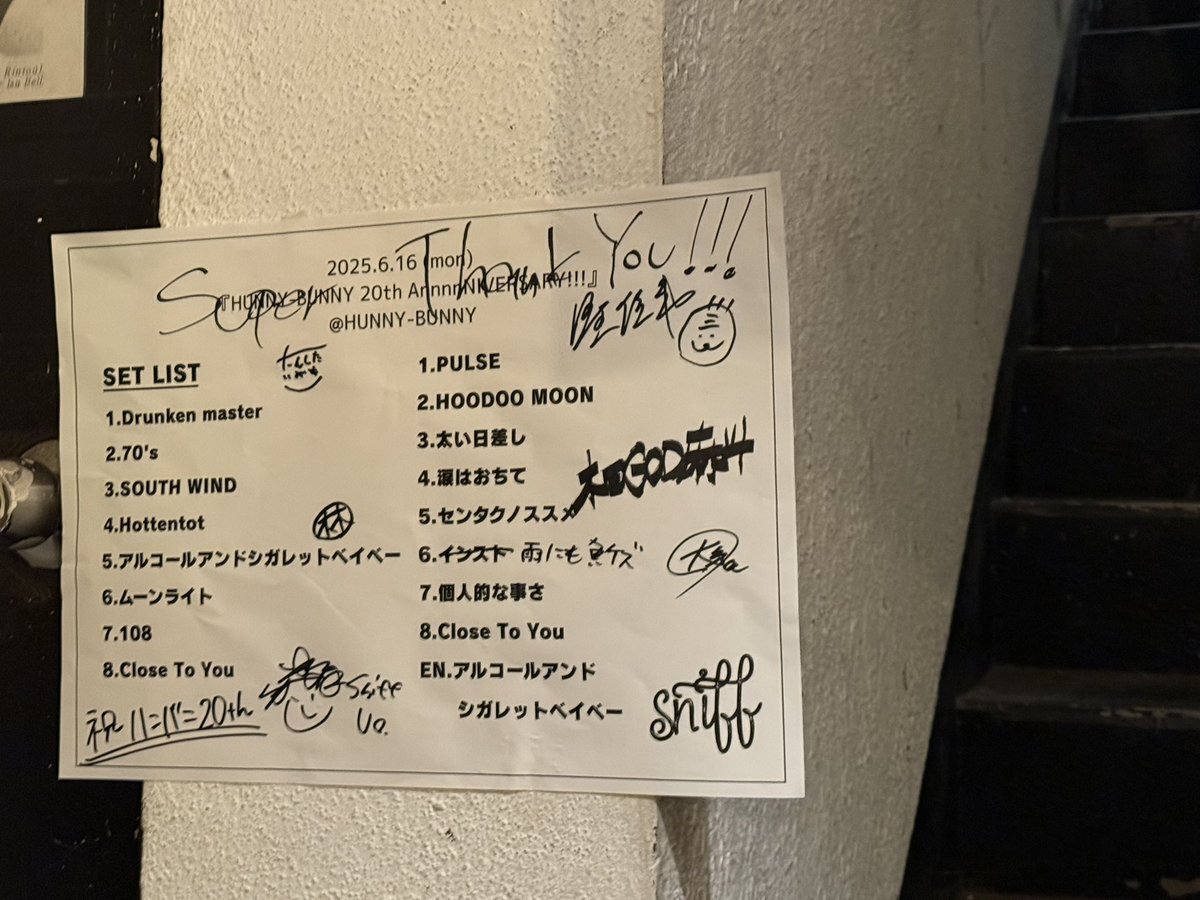 Rintoul
Ian Bell
Super Thank You!!!
2025.6.16 (mon)
『HUNNY-BUNNY 20th AnnnnNIVERSARY!!!』
@HUNNY-BUNNY
SET LIST
1.Drunken master
2.70's
3.SOUTH WIND
4.Hottentot
林
5.アルコールアンドシガレットベイベー
6.ムーンライト
7.108
8.Close To You
祝 ハニバニ20th
Vo.
1.PULSE
2.HOODOO MOON
3.太い日差し
4.涙はおちて
5.センタクノススメ
6.インスト 雨にも負ケズ
7.個人的な事さ
8.Close To You
EN.アルコールアンド
シガレットベイベー
sniff